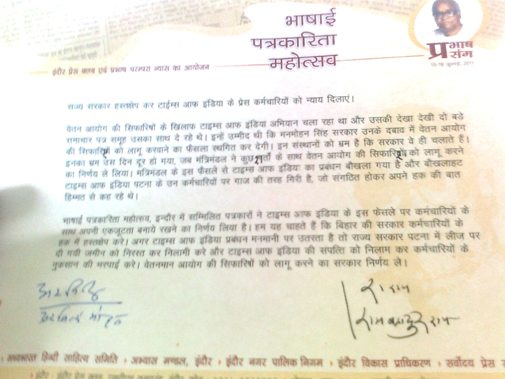 भाषाई
पत्रकारिता
महोत्सव
प्रभाष
प्रसंग
15-16 जुलाई, 2011
इंदौर प्रेस क्लब एवं प्रभाष परम्परा न्यास का आयोजन
राज्य सरकार हस्तक्षेप कर टाईम्स आफ इंडिया के प्रेस कर्मचारियों को न्याय दिलाएं।
वेतन आयोग की सिफारिषों के खिलाफ टाइम्स आफ इंडिया अभियान चला रहा था और उसकी देखा देखी दो बड़े
समाचार पत्र समूह उसका साथ दे रहे थे। इन्हें उम्मीद थी कि मनमोहन सिंह सरकार उनके दबाव में वेतन आयोग
की सिफारिषों को लागू करवाने का फैसला स्थगित कर देगी। इन संस्थानों को भ्रम है कि सरकार वे ही चलाते हैं।
इनका भ्रम उस दिन दूर हो गया, जब मंत्रिमंडल ने कुछ शर्तों के साथ वेतन आयोग की सिफारिषों को लागू करने
का निर्णय ले लिया। मंत्रिमंडल के इस फैसले से टाइम्स आफ इंडिया का प्रबंधन बौखला गया है और बौखलाहट
टाइम्स आफ इंडिया पटना के उन कर्मचारियों पर गाज की तरह गिरी है, जो संगठित होकर अपने हक की बात
हिम्मत से कह रहे थे।
भाषाई पत्रकारिता महोत्सव, इन्दौर में सम्मिलित पत्रकारों ने टाइम्स आफ इंडिया के इस फेसले पर कर्मचारियों के
साथ अपनी एकजुटता बनाये रखने का निर्णय लिया है। हम यह चाहते हैं कि बिहार की सरकार कर्मचारियों के
हक में हस्तक्षेप करे। अगर टाइम्स आफ इंडिया प्रबंधन मनमानी पर उतरता है तो राज्य सरकार पटना में लीज पर
दी गयी जमीन को निरस्त कर निलामी करे और टाइम्स आफ इंडिया की संपत्ति को निलाम कर कर्मचारियों के
नुकसान की भरपाई करे। वेतनमान आयोग की सिफारिषों को लागू करने का सरकार निर्णय ले।
राम बहादुर राय
हिन्दी साहित्य समिति • अभ्यास मण्डल, इंदौर • इंदौर नगर पालिक निगम • इंदौर विकास प्राधिकरण • सर्वोदय प्रेस